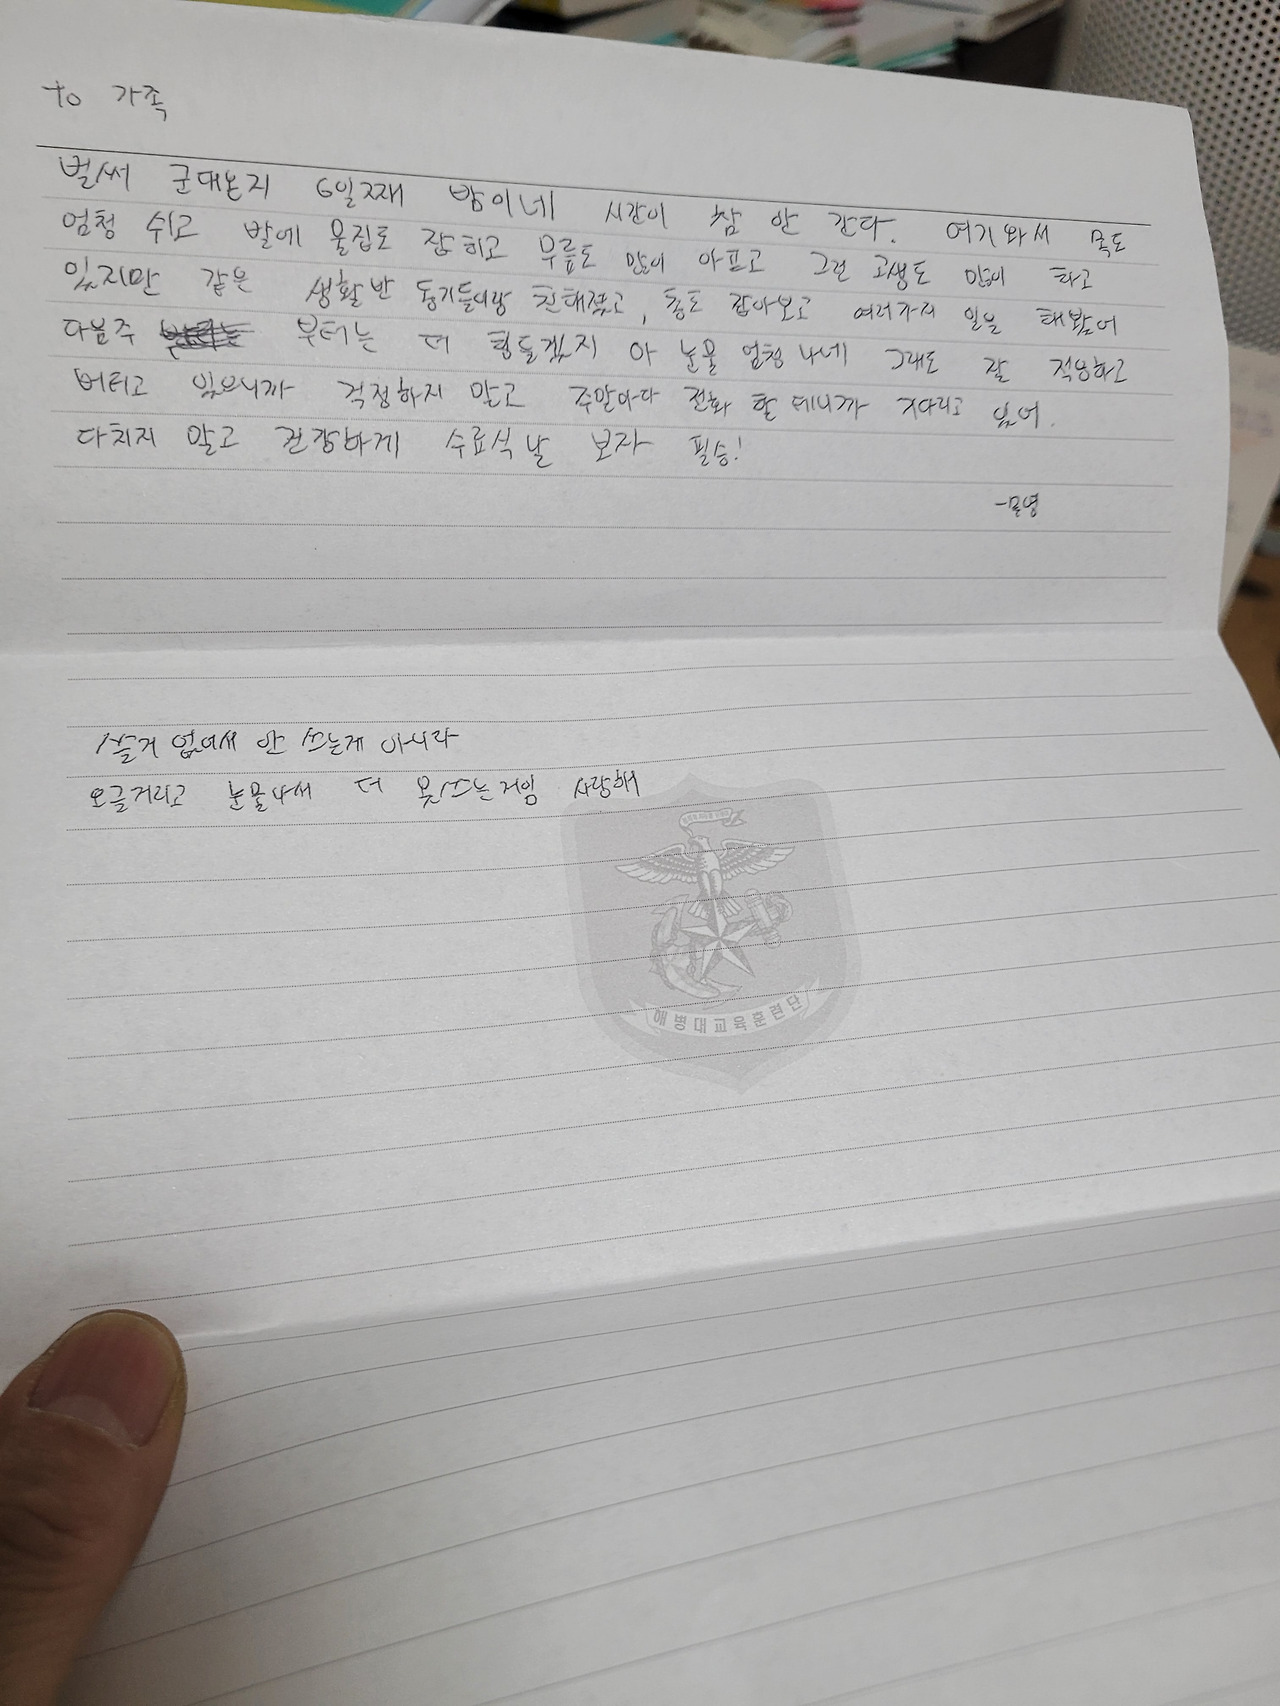 to 가족
벌써 군대온지 6일째 밤이네 시간이 참 안 간다. 여기와서 목도
엄청 쉬고 발에 물집도 잡히고 무릎도 많이 아프고 그런 고생도 많이 하고
있지만 같은 생활반 동기들이랑 친해졌고, 총도 잡아보고 여러가지 일을 해봤어
다음주 부터는 더 힘들겠지 아 눈물 엄청 나네 그래도 잘 적응하고
버티고 있으니까 걱정하지 말고 주말마다 전화 할 테니까 기다리고 있어.
다치지 말고 건강하게 수료식 날 보자 필승!
쓸거 없어서 안 쓰는게 아니라
오글거리고 눈물나서 더 못쓰는거임 사랑해
해병대교육훈련단